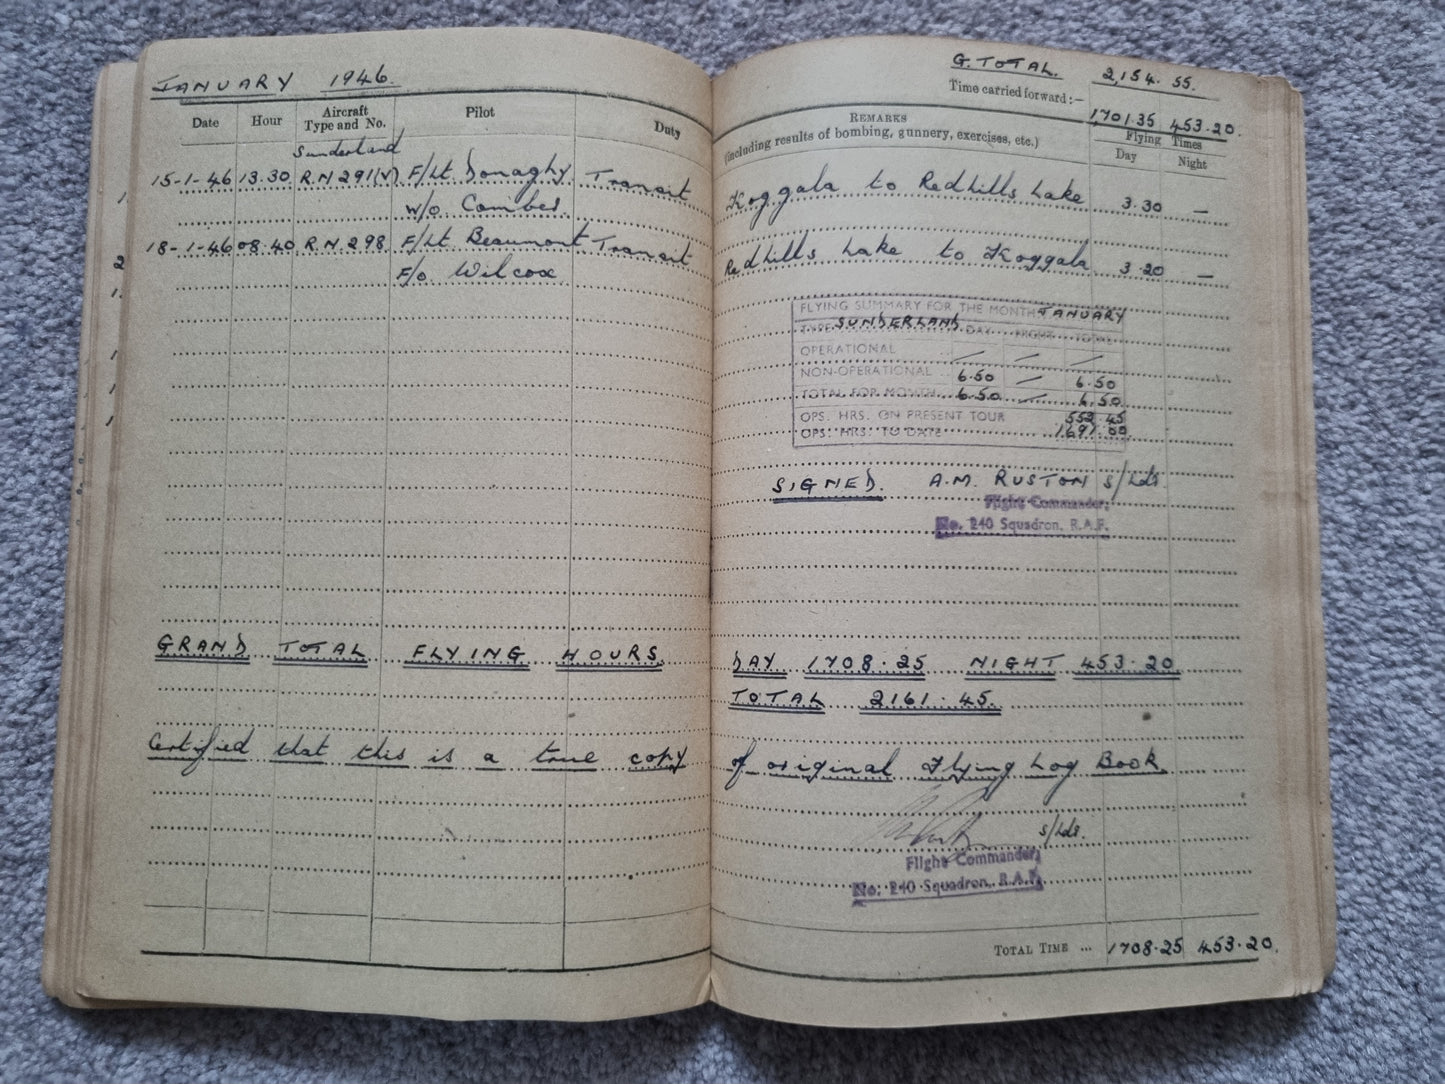 JANUARY 1946.
G. TOTAL. 2,154. 55.
Time carried forward :— 1,701.35 453.20.
Date Hour Aircraft Type and No. Pilot Duty
REMARKS
(including results of bombing, gunnery, exercises, etc.)
Flying Times
Day Night
Sunderland
15-1-46 13.30 R.N 291(V) F/Lt Donaghy Transit Koggala to Redhills Lake 3.30 —
W/O Comber.
18-1-46 08.40 R.N. 298 F/Lt Beaumont Transit Redhills Lake to Koggala 3.20 —
F/O. Wilcox
FLYING SUMMARY FOR THE MONTH JANUARY
TYPE SUNDERLAND DAY NIGHT TOTAL
OPERATIONAL — — —
NON-OPERATIONAL 6.50 — 6.50
TOTAL FOR MONTH 6.50 — 6.50
OPS. HRS. ON PRESENT TOUR 552.45
OPS. HRS. TO DATE 1,691.00
SIGNED. A.M. RUSTON S/Ldr
Flight Commander,
No. 240 Squadron, R.A.F.
GRAND TOTAL FLYING HOURS DAY 1708.25 NIGHT 453.20
TOTAL 2161.45.
Certified that this is a true copy of original Flying Log Book
S/Ldr.
Flight Commander,
No. 240 Squadron, R.A.F.
TOTAL TIME ... 1708.25 453.20.